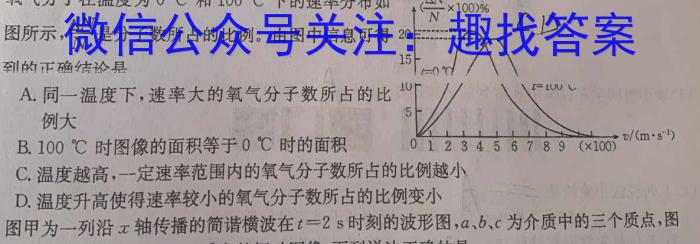 氧气分子在温度为0 ℃和100 ℃下的速率分布如
图所示，是分子数所占的比例。由图中信息可得
到的正确结论是
微信公众号关注：趣找答案
A. 同一温度下，速率大的氧气分子数所占的比
例大
B. 100 ℃ 时图像的面积等于 0 ℃ 时的面积
C. 温度越高，一定速率范围内的氧气分子数所占的比例越小
D. 温度升高使得速率较小的氧气分子数所占的比例变小
ΔN/N ×100%
20
15
10
5
0
t=0℃
t=100℃
1 2 3 4 5 6 7 8 9 (×100) v/(m·s⁻¹)
图甲为一列沿 x 轴传播的简谐横波在 t=2 s 时刻的波形图，a、b、c 为介质中的三个质点，图